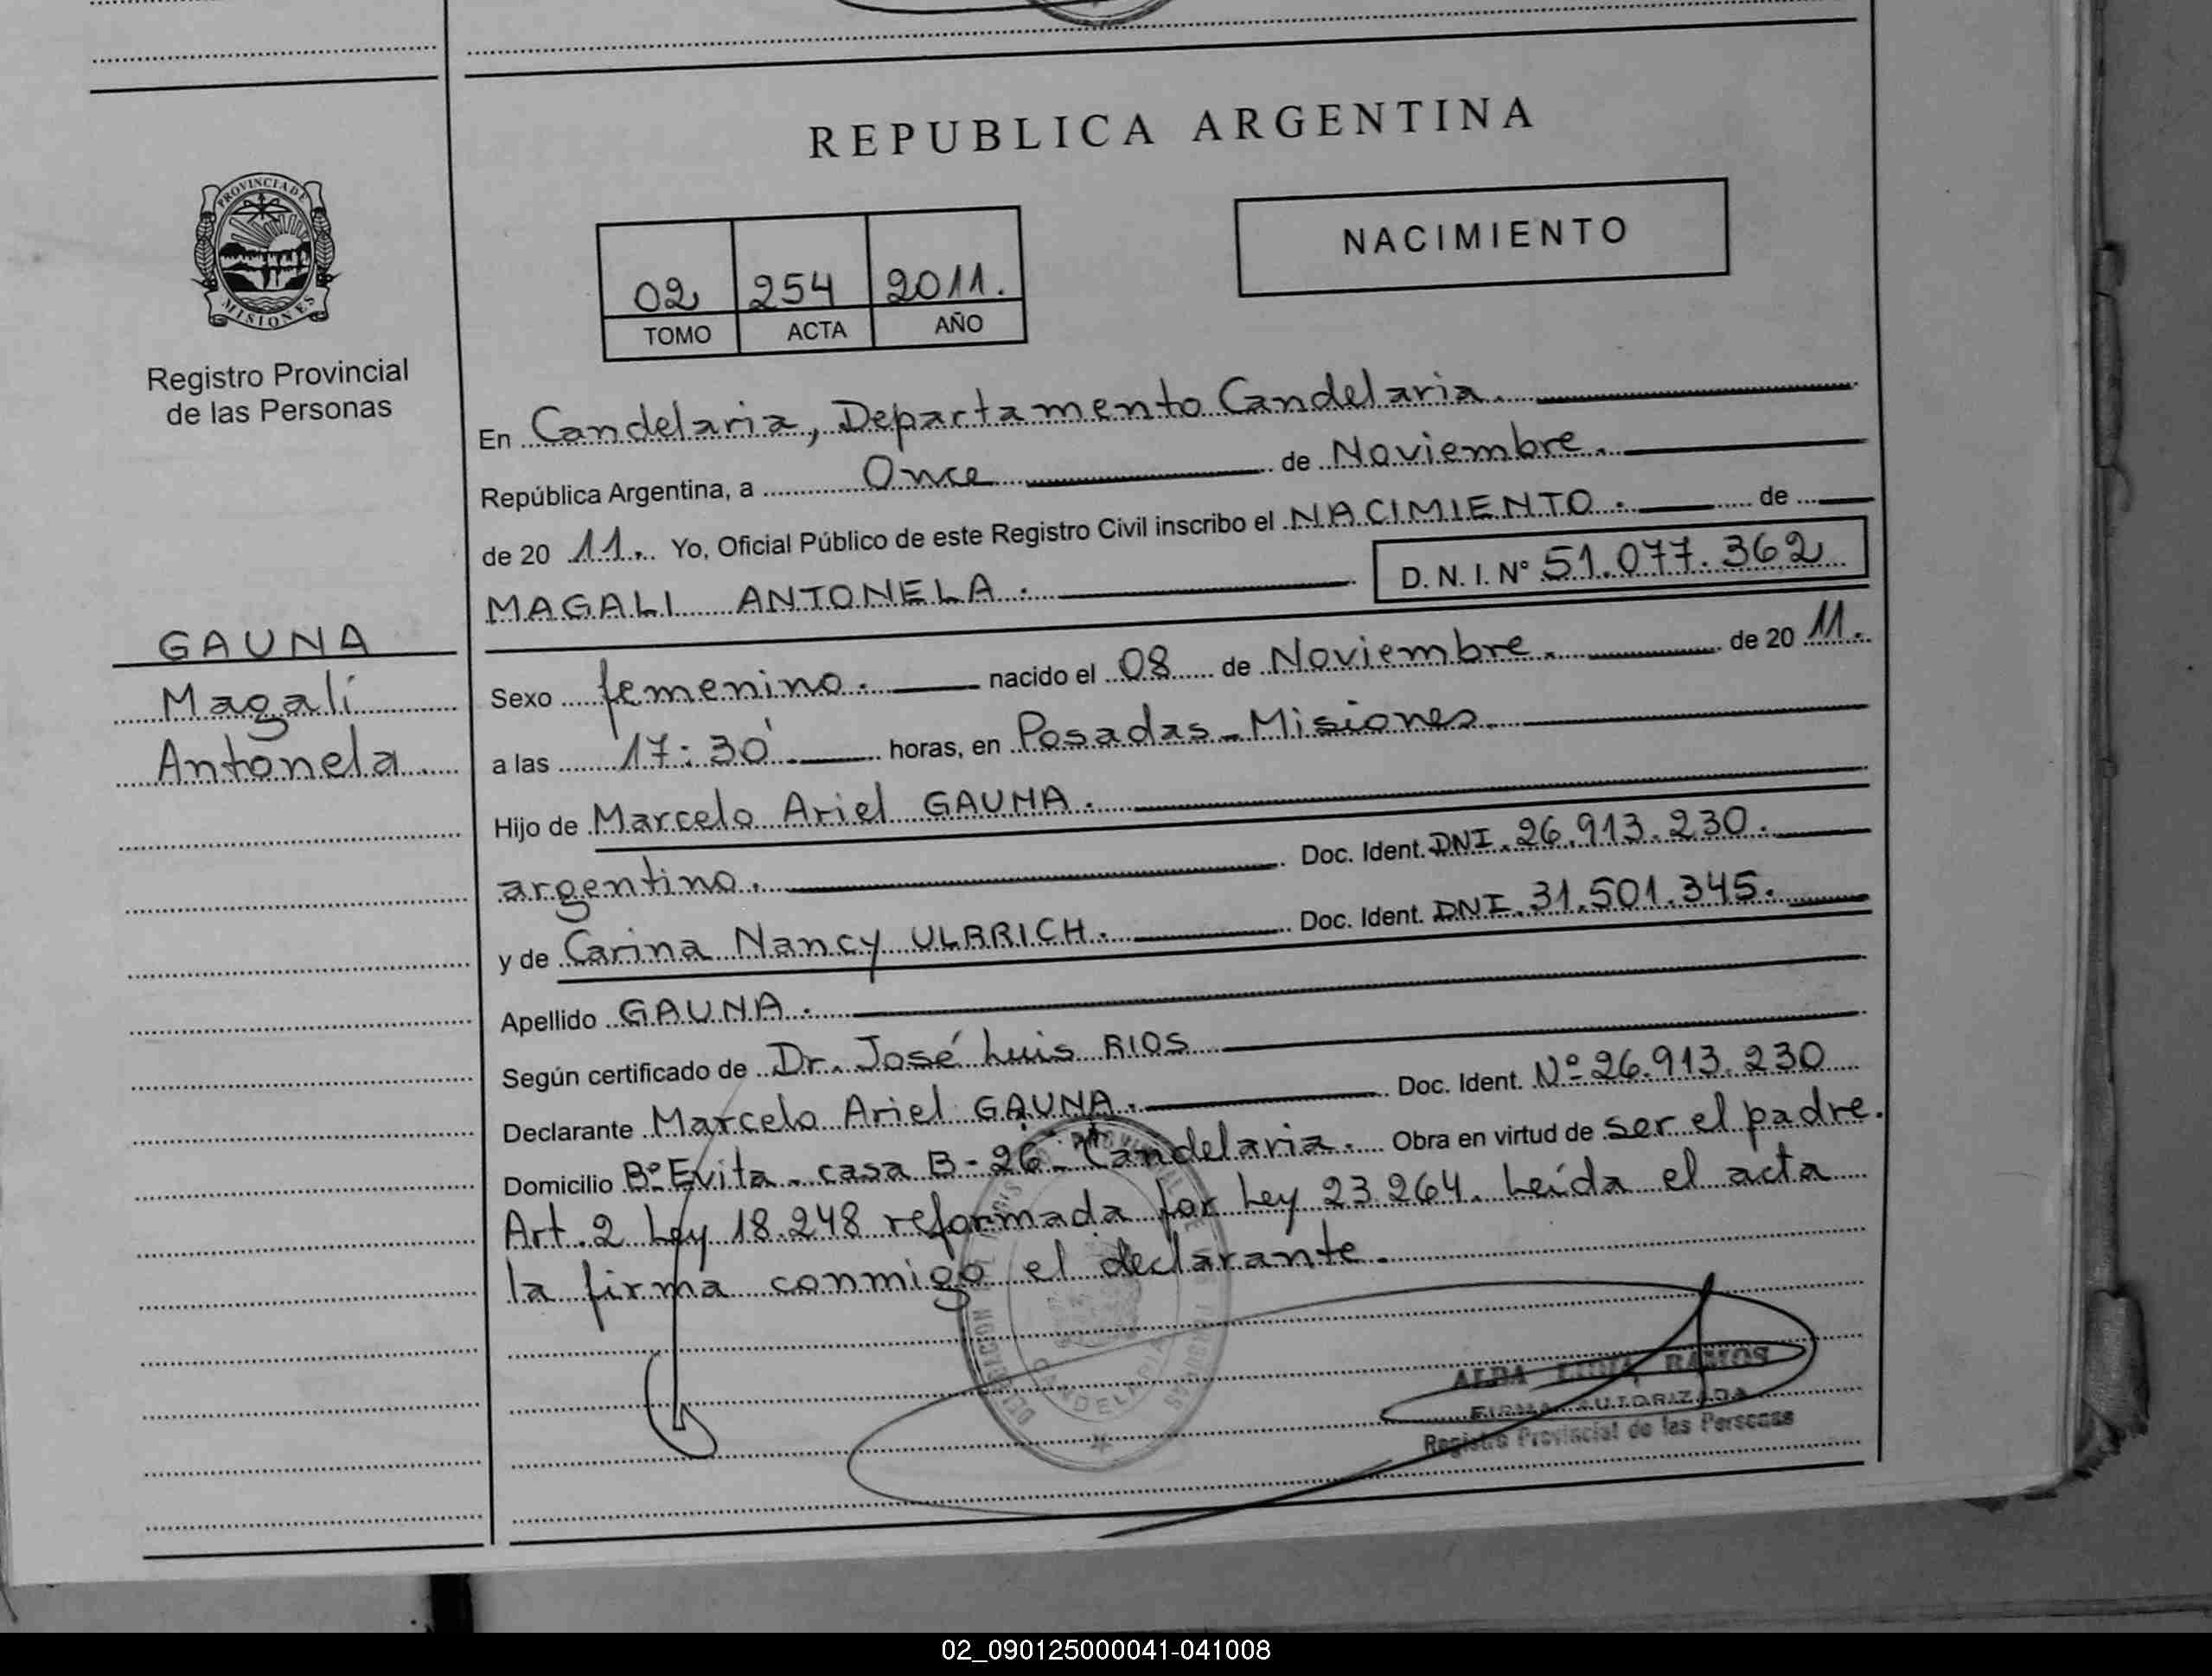 REPUBLICA ARGENTINA
PROVINCIA DE
MISIONES
Registro Provincial
de las Personas
NACIMIENTO
02 254 2011.
TOMO ACTA AÑO
En Candelaria, Departamento Candelaria.
República Argentina, a Once de Noviembre.
de 20 11. Yo, Oficial Público de este Registro Civil inscribo el NACIMIENTO. de
MAGALI ANTONELA. D. N. I. Nº 51.077.362
GAUNA
Magalí
Antonela.
Sexo femenino. nacido el 08 de Noviembre. de 20 11.
a las 17:30' horas, en Posadas - Misiones.
Hijo de Marcelo Ariel GAUNA.
argentino. Doc. Ident. DNI. 26.913.230.
y de Carina Nancy ULRRICH. Doc. Ident. DNI. 31.501.345.
Apellido GAUNA.
Según certificado de Dr. José Luis RIOS
Declarante Marcelo Ariel GAUNA. Doc. Ident. Nº 26.913.230
Domicilio Bº Evita - casa B-26 - Candelaria. Obra en virtud de ser el padre.
Art. 2 Ley 18.248 reformada por Ley 23.264. Leída el acta
la firma conmigo el declarante.
CANDELARIA
ALBA LIDIA RAMOS
FIRMA AUTORIZADA
Registro Provincial de las Personas
02_090125000041-041008